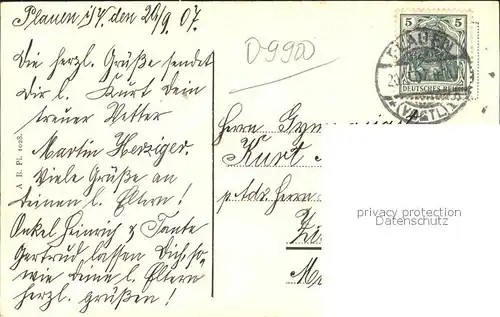 Plauen i/V. den 26/9. 07.
Die herzl. Grüße sendet
Dir l. Kurt Dein
treuer Vetter
Martin Herziger.
Viele Grüße an
deinen l. Eltern!
Onkel Heinrich & Tante
Gertrud lassen Dich, so-
wie deine l. Eltern
herzl. grüßen!
A R. Pl. 1028.
D9900
5 5
DEUTSCHES REICH
PLAUEN
(VOGTL.)
Herrn
Kurt
p. Adr. Herrn
privacy protection
Datenschutz